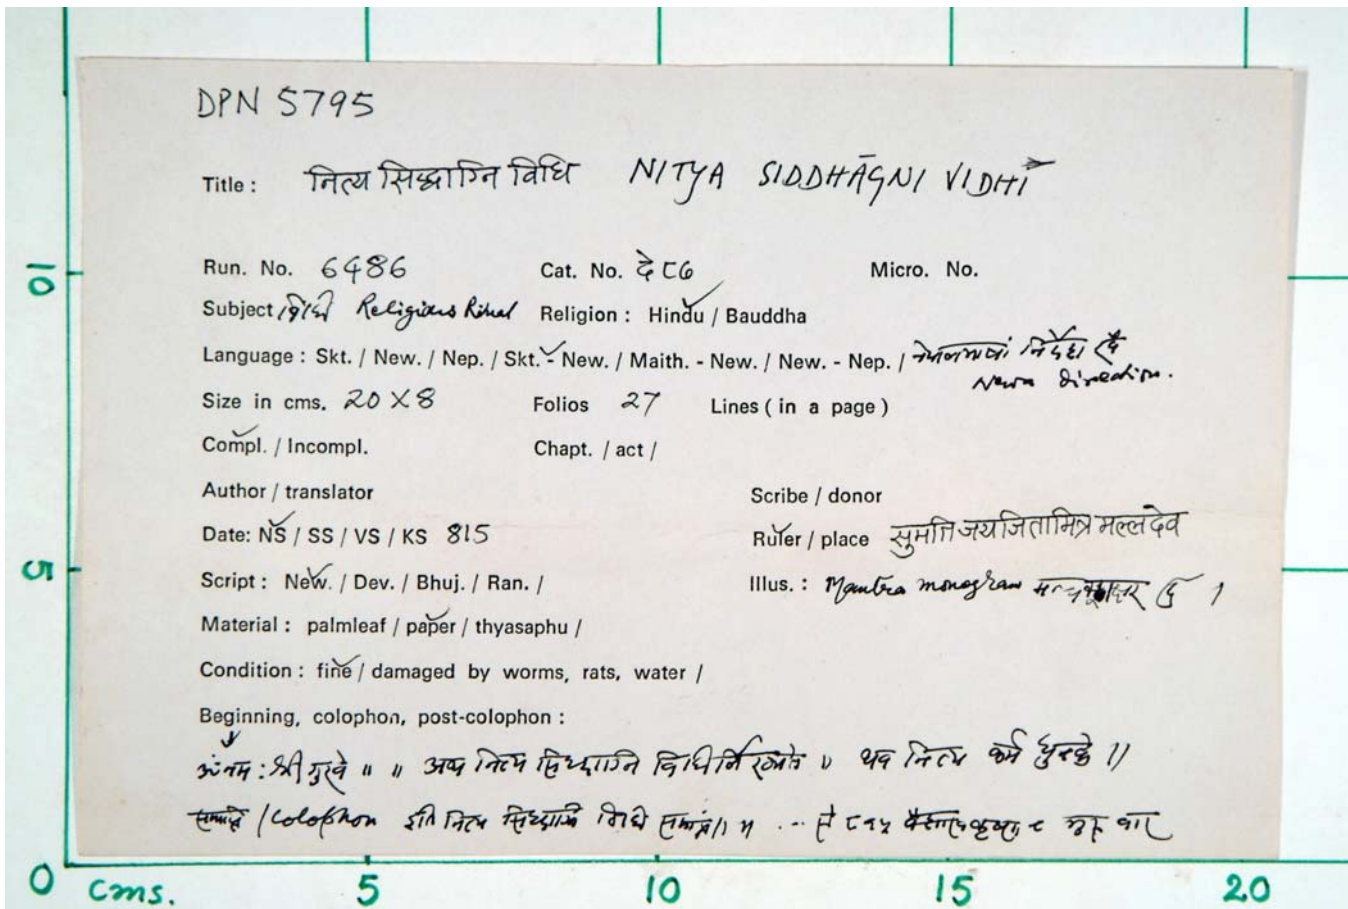 DPN 5795
Title : नित्य सिद्धाग्नि विधि NITYA SIDDHĀGNI VIDHI
Run. No. 6486 Cat. No. दे ८६ Micro. No.
Subject विधि Religious Ritual Religion : Hindu / Bauddha
Language : Skt. / New. / Nep. / Skt. - New. / Maith. - New. / New. - Nep. / नेपालभाषां निर्देश
Newa direction.
Size in cms. 20 X 8 Folios 27 Lines ( in a page )
Compl. / Incompl. Chapt. / act /
Author / translator Scribe / donor
Date: NS / SS / VS / KS 815 Ruler / place सुमति जयजितामित्र मल्लदेव
Script : New. / Dev. / Bhuj. / Ran. / Illus. : Mantra monogram
Material : palmleaf / paper / thyasaphu /
Condition : fine / damaged by worms, rats, water /
Beginning, colophon, post-colophon :
श्री गुरवे ॥ ॥ अथ नित्य सिद्धाग्नि ॥ थव नित्य कर्म ॥
/ Colophon इति नित्य सिद्धाग्नि विधि
10
5
0 cms. 5 10 15 20